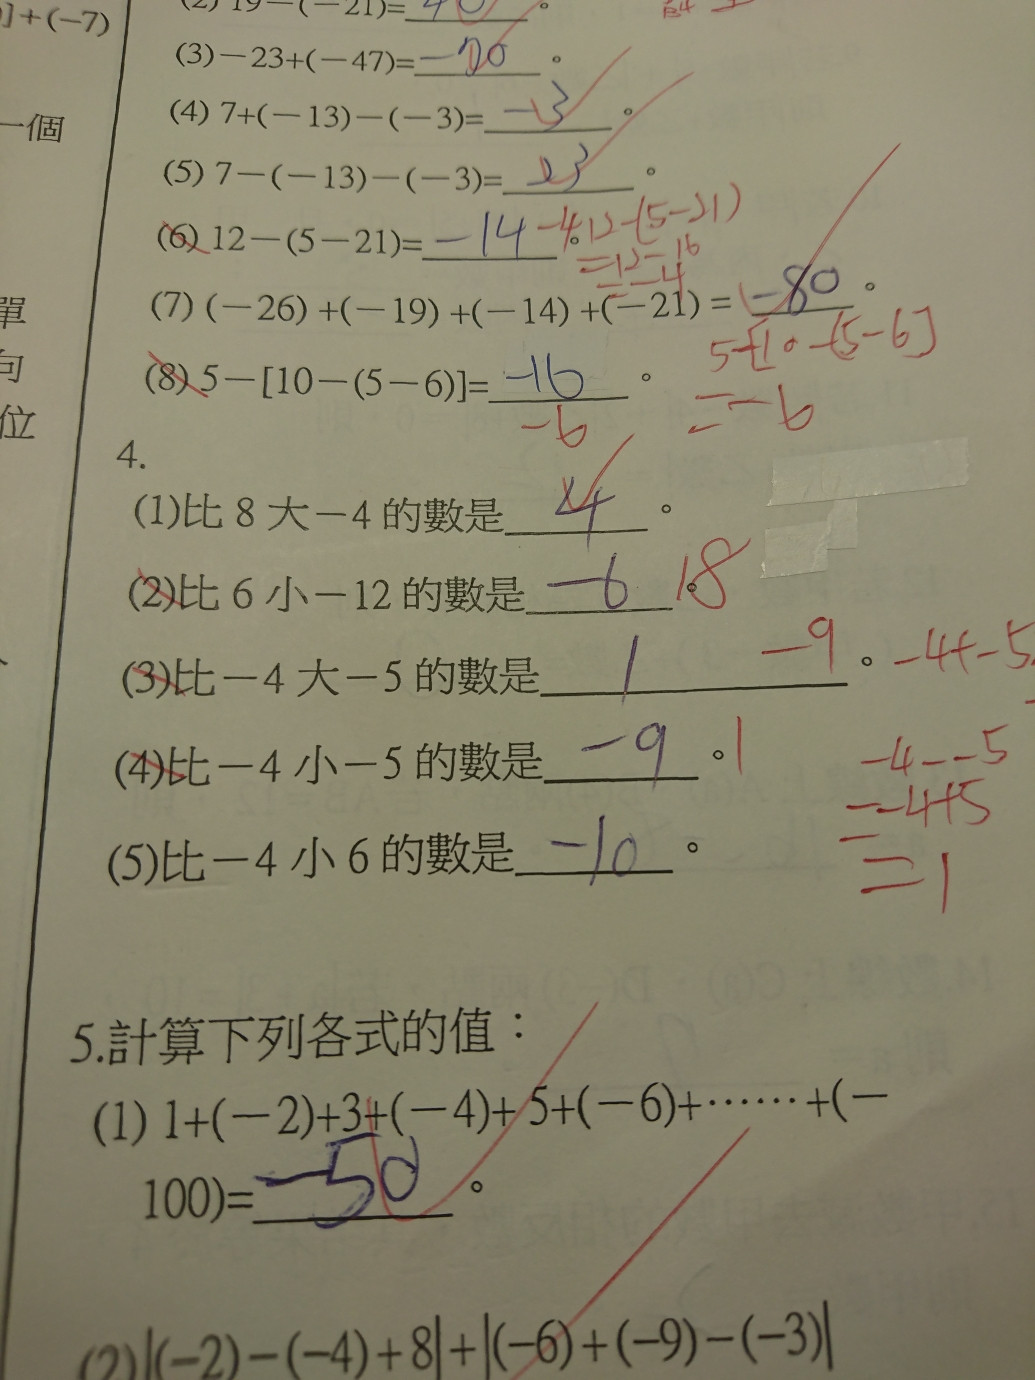 (2) 19－(－21)=40。
]＋(－7)
(3)－23+(－47)=－70。
一個
(4) 7+(－13)－(－3)=－3。
(5) 7－(－13)－(－3)=23。
(6) 12－(5－21)=－14。 －4 12－(5－21)
=12－16
=－4
(7) (－26) +(－19) +(－14) +(－21) = －80。
單
5－[10－(5－6)]
(8) 5－[10－(5－6)]=－16。
句
－6
=－6
位
4.
(1)比 8 大－4 的數是4。
(2)比 6 小－12 的數是－6。 18
(3)比－4 大－5 的數是1 －9。 －4+－5
(4)比－4 小－5 的數是－9。1
－4－－5
=－4+5
=1
(5)比－4 小 6 的數是－10。
5.計算下列各式的值：
(1) 1+(－2)+3+(－4)+ 5+(－6)+⋯⋯+(－
100)=－50。
(2)|(−2)−(−4)+8|+|(−6)+(−9)−(−3)|